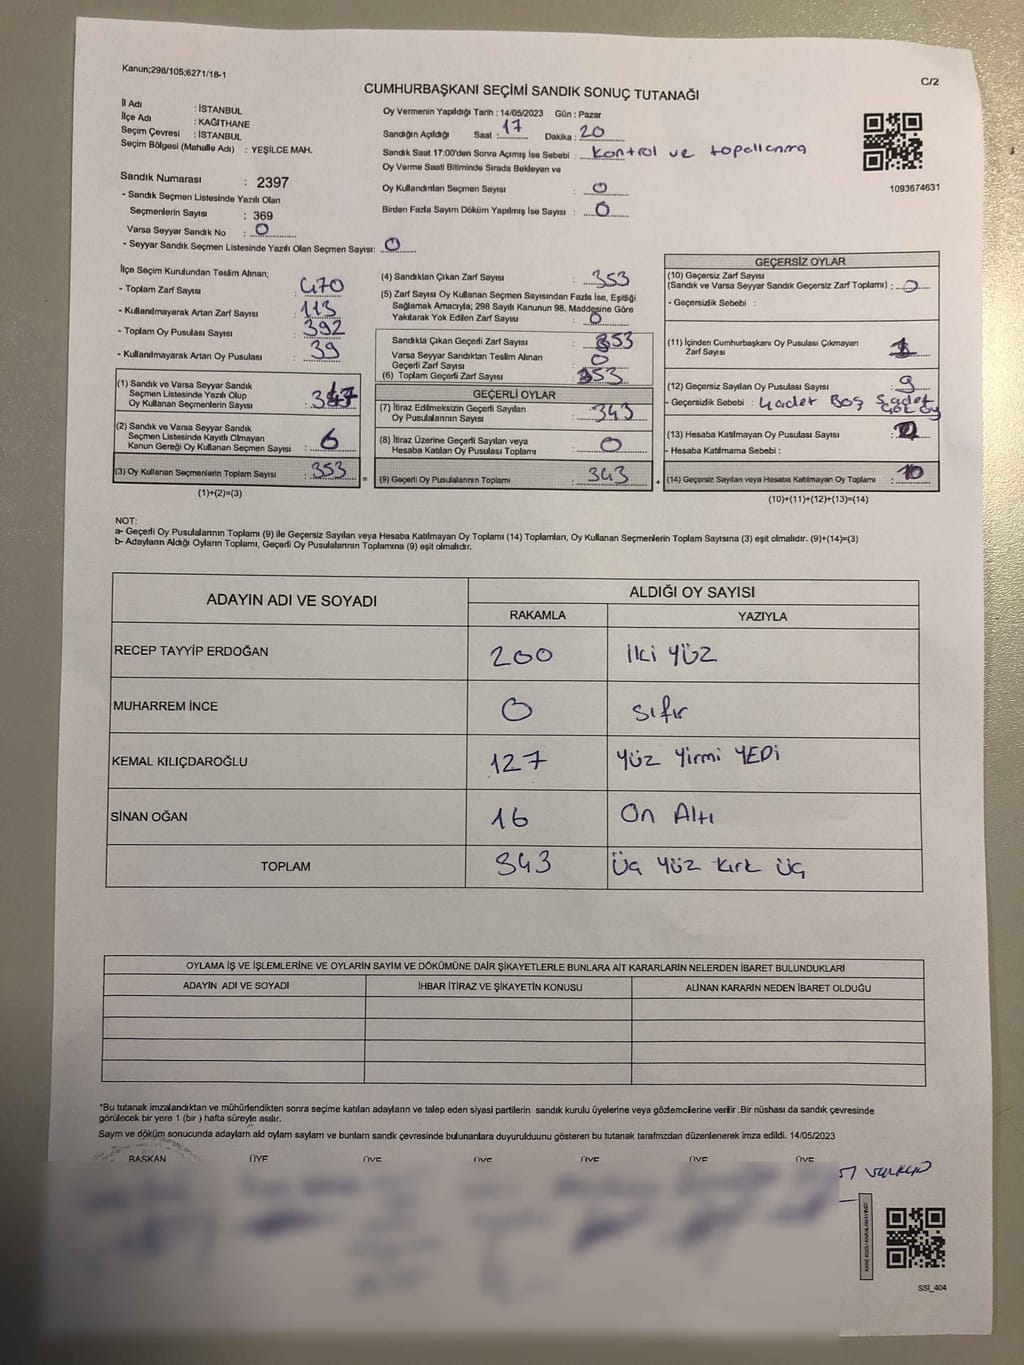 Kanun;298/105;6271/18-1
C/2
CUMHURBAŞKANI SEÇİMİ SANDIK SONUÇ TUTANAĞI
İl Adı : İSTANBUL
İlçe Adı : KAĞITHANE
Seçim Çevresi : İSTANBUL
Seçim Bölgesi (Mahalle Adı) : YEŞİLCE MAH.
Sandık Numarası : 2397
- Sandık Seçmen Listesinde Yazılı Olan
Seçmenlerin Sayısı : 369
Varsa Seyyar Sandık No : 0
- Seyyar Sandık Seçmen Listesinde Yazılı Olan Seçmen Sayısı: 0
Oy Vermenin Yapıldığı Tarih : 14/05/2023 Gün : Pazar
Sandığın Açıldığı Saat : 17 Dakika : 20
Sandık Saat 17:00'den Sonra Açmış İse Sebebi : Kontrol ve topallanma
Oy Verme Saati Bitiminde Sırada Bekleyen ve
Oy Kullandırılan Seçmen Sayısı : 0
Birden Fazla Sayım Döküm Yapılmış İse Sayısı : 0
1093674631
İlçe Seçim Kurulundan Teslim Alınan;
- Toplam Zarf Sayısı : 470
- Kullanılmayarak Artan Zarf Sayısı : 113
- Toplam Oy Pusulası Sayısı : 392
- Kullanılmayarak Artan Oy Pusulası : 39
(1) Sandık ve Varsa Seyyar Sandık
Seçmen Listesinde Yazılı Olup
Oy Kullanan Seçmenlerin Sayısı : 347
(2) Sandık ve Varsa Seyyar Sandık
Seçmen Listesinde Kayıtlı Olmayan
Kanun Gereği Oy Kullanan Seçmen Sayısı : 6
(3) Oy Kullanan Seçmenlerin Toplam Sayısı : 353
(1)+(2)=(3)
(4) Sandıktan Çıkan Zarf Sayısı : 353
(5) Zarf Sayısı Oy Kullanan Seçmen Sayısından Fazla İse, Eşitliği
Sağlamak Amacıyla; 298 Sayılı Kanunun 98. Maddesine Göre
Yakılarak Yok Edilen Zarf Sayısı : 0
Sandıkla Çıkan Geçerli Zarf Sayısı : 353
Varsa Seyyar Sandıktan Teslim Alınan
Geçerli Zarf Sayısı : 0
(6) Toplam Geçerli Zarf Sayısı : 353
GEÇERLİ OYLAR
(7) İtiraz Edilmeksizin Geçerli Sayılan
Oy Pusulalarının Sayısı : 343
(8) İtiraz Üzerine Geçerli Sayılan veya
Hesaba Katılan Oy Pusulası Toplamı : 0
= (9) Geçerli Oy Pusulalarının Toplamı : 343
GEÇERSİZ OYLAR
(10) Geçersiz Zarf Sayısı
(Sandık ve Varsa Seyyar Sandık Geçersiz Zarf Toplamı) : 0
- Geçersizlik Sebebi :
(11) İçinden Cumhurbaşkanı Oy Pusulası Çıkmayan
Zarf Sayısı :
(12) Geçersiz Sayılan Oy Pusulası Sayısı : 9
- Geçersizlik Sebebi : 4 adet Boş 5 adet
(13) Hesaba Katılmayan Oy Pusulası Sayısı :
- Hesaba Katılmama Sebebi :
+ (14) Geçersiz Sayılan veya Hesaba Katılmayan Oy Toplamı : 10
(10)+(11)+(12)+(13)=(14)
NOT:
a- Geçerli Oy Pusulalarının Toplamı (9) ile Geçersiz Sayılan veya Hesaba Katılmayan Oy Toplamı (14) Toplamları, Oy Kullanan Seçmenlerin Toplam Sayısına (3) eşit olmalıdır. (9)+(14)=(3)
b- Adayların Aldığı Oyların Toplamı, Geçerli Oy Pusulalarının Toplamına (9) eşit olmalıdır.
ADAYIN ADI VE SOYADI
ALDIĞI OY SAYISI
RAKAMLA YAZIYLA
RECEP TAYYİP ERDOĞAN 200 iki yüz
MUHARREM İNCE 0 sıfır
KEMAL KILIÇDAROĞLU 127 yüz yirmi YEDİ
SİNAN OĞAN 16 On Altı
TOPLAM 343 Üç yüz kırk üç
OYLAMA İŞ VE İŞLEMLERİNE VE OYLARIN SAYIM VE DÖKÜMÜNE DAİR ŞİKAYETLERLE BUNLARA AİT KARARLARIN NELERDEN İBARET BULUNDUKLARI
ADAYIN ADI VE SOYADI İHBAR İTİRAZ VE ŞİKAYETİN KONUSU ALINAN KARARIN NEDEN İBARET OLDUĞU
*Bu tutanak imzalandıktan ve mühürlendikten sonra seçime katılan adayların ve talep eden siyasi partilerin sandık kurulu üyelerine veya gözlemcilerine verilir .Bir nüshası da sandık çevresinde
görülecek bir yere 1 (bir ) hafta süreyle asılır.
Sayım ve döküm sonucunda adayların ald oyların sayların ve bunların sandk çevresinde bulunanlara duyurulduunu gösteren bu tutanak tarafmzdan düzenlenerek imza edildi. 14/05/2023
BAŞKAN ÜYE ÜYE ÜYE ÜYE ÜYE ÜYE
SSI_404